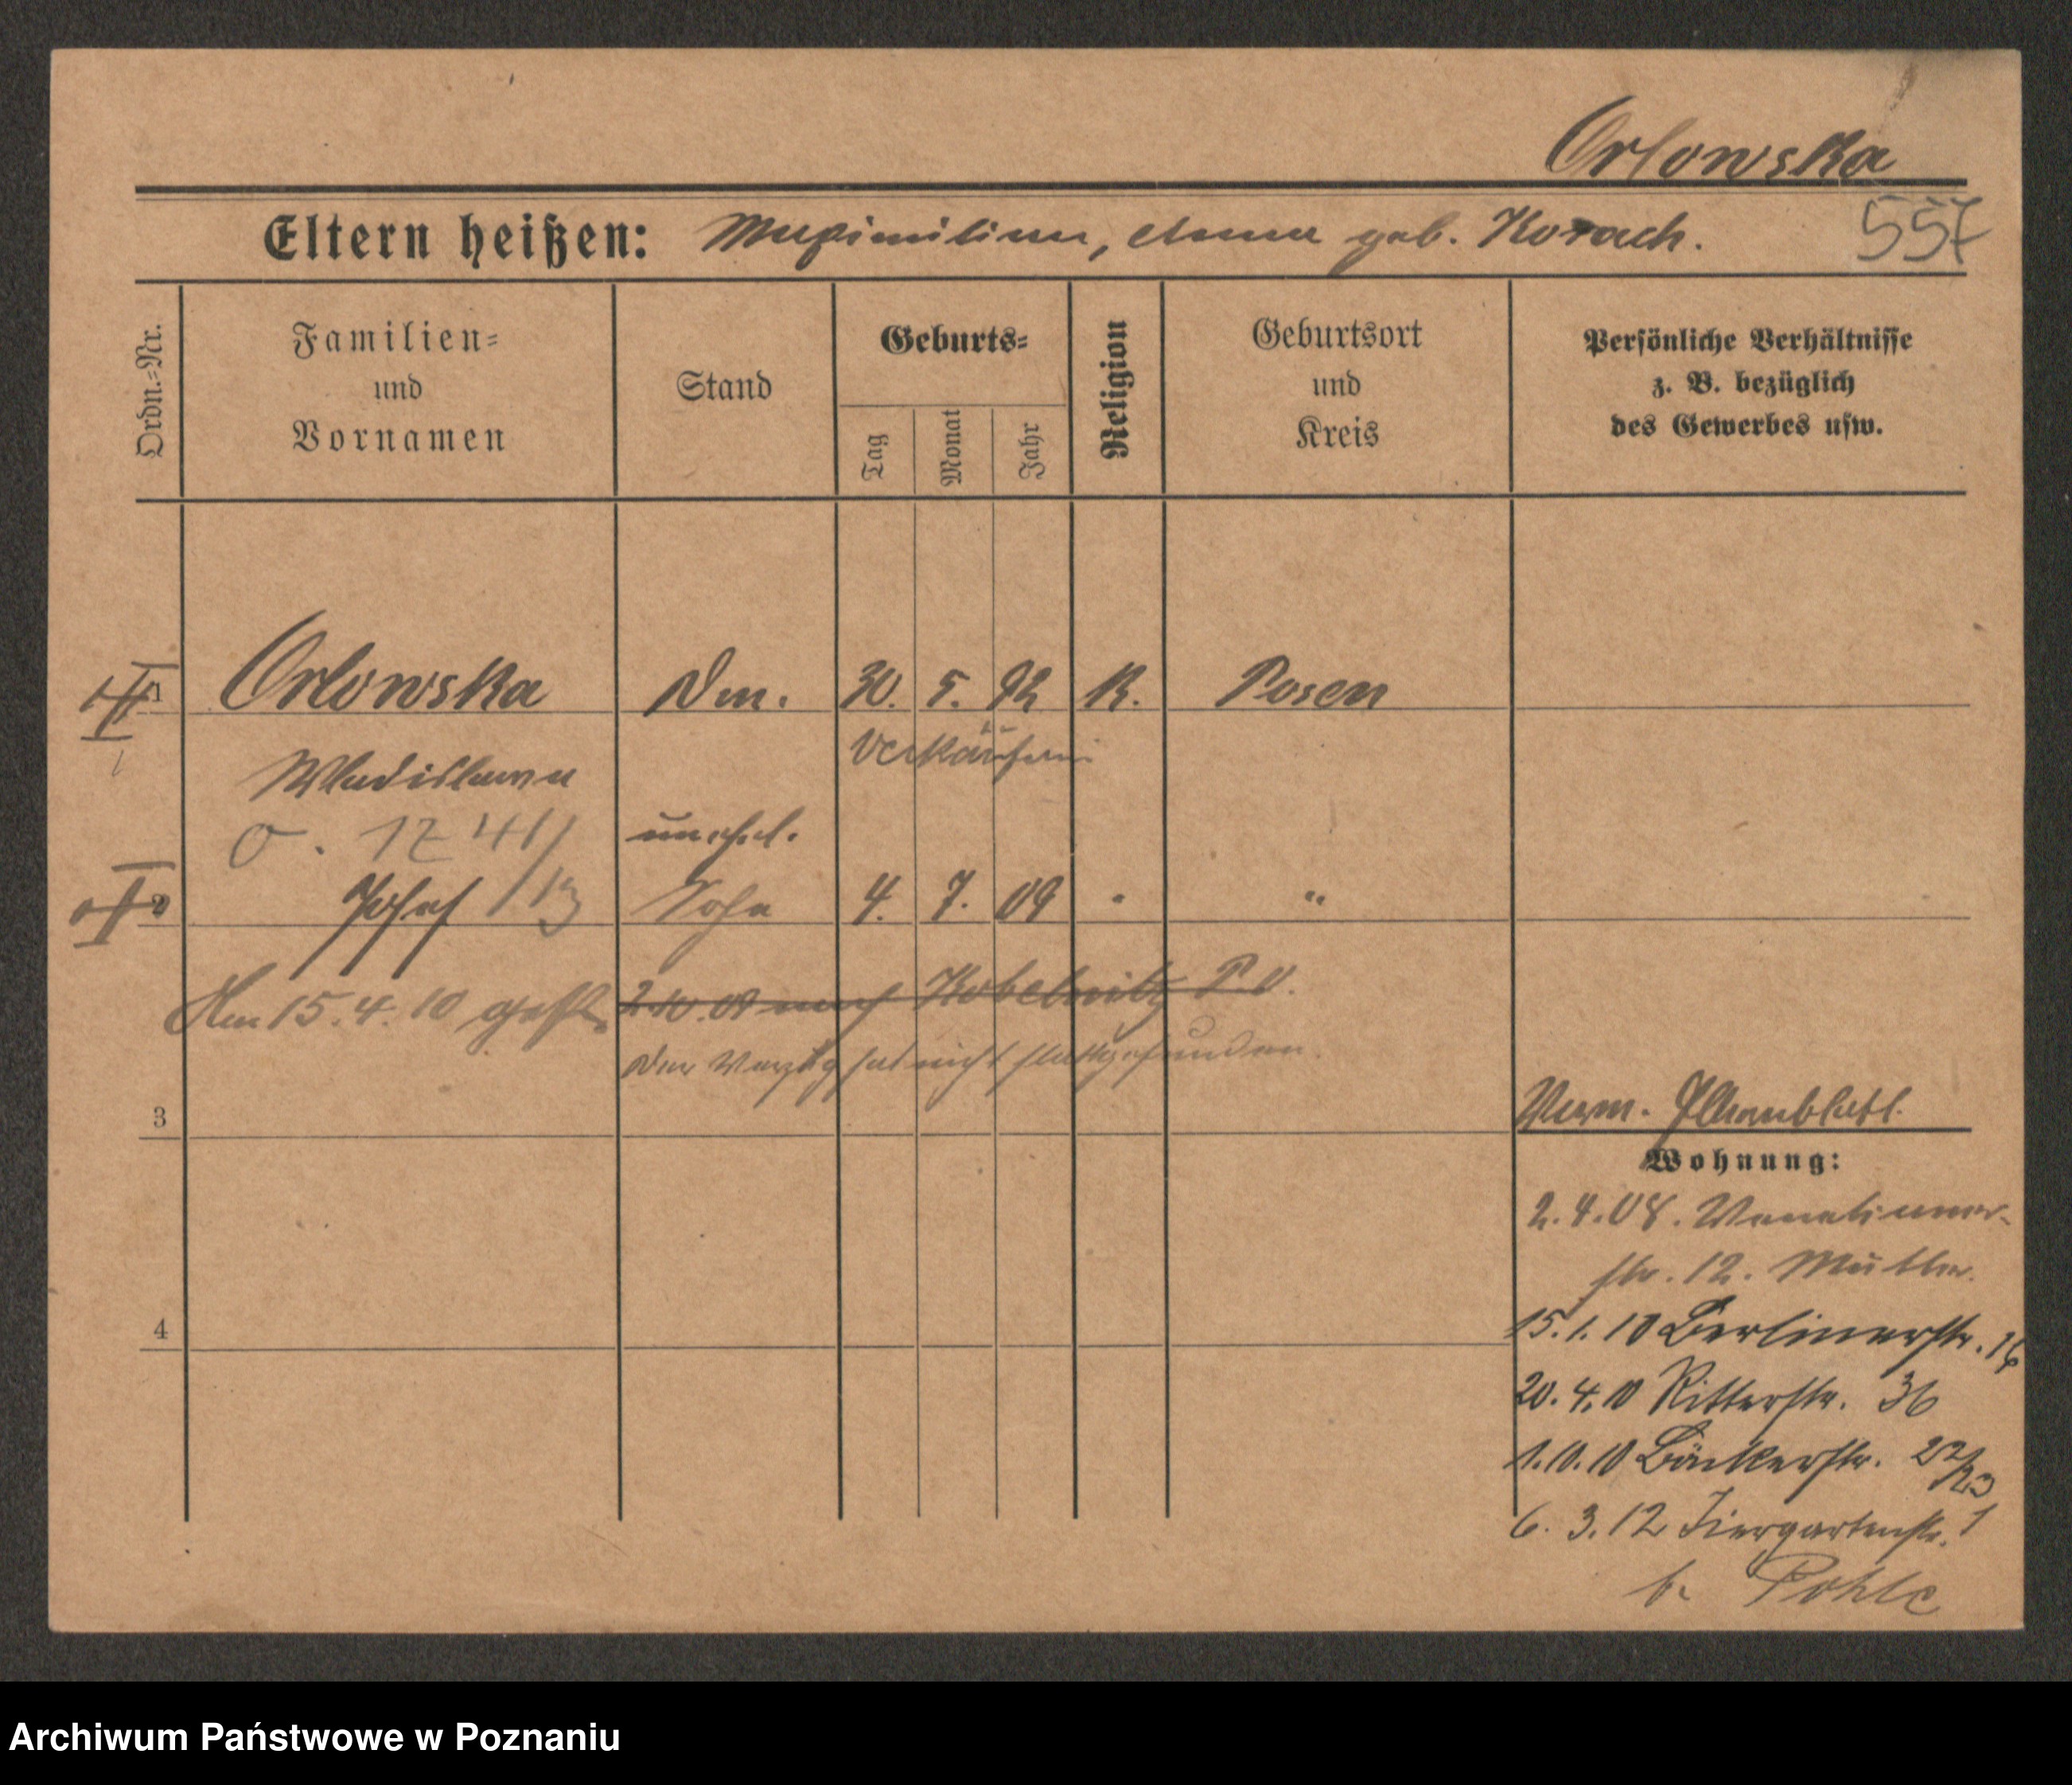 Orlowska
Eltern heißen: Maximilian, Anna geb. Korach.
557
Ordn.-Nr.
Familien-
und
Vornamen
Stand
Geburts-
Tag
Monat
Jahr
Religion
Geburtsort
und
Kreis
Persönliche Verhältnisse
z. B. bezüglich
des Gewerbes usw.
1 Orlowska 30. 5. 92 K. Posen
Verkäuferin
Wladislawa
unehel.
2 Josef Sohn 4. 7. 09 " "
Am 15. 4. 10
2.10.09 nach Kobelnitz P. O.
Der Verzug hat nicht stattgefunden.
3
Verm.
Wohnung:
2. 4. 08. Venetianer-
str. 12. Mutter.
4
15. 1. 10 Berlinerstr. 16
20. 4. 10 Ritterstr. 36
1. 10. 10 Bäckerstr. 22/23
6. 3. 12 Tiergartenstr. 1
b. Pohle
Archiwum Państwowe w Poznaniu